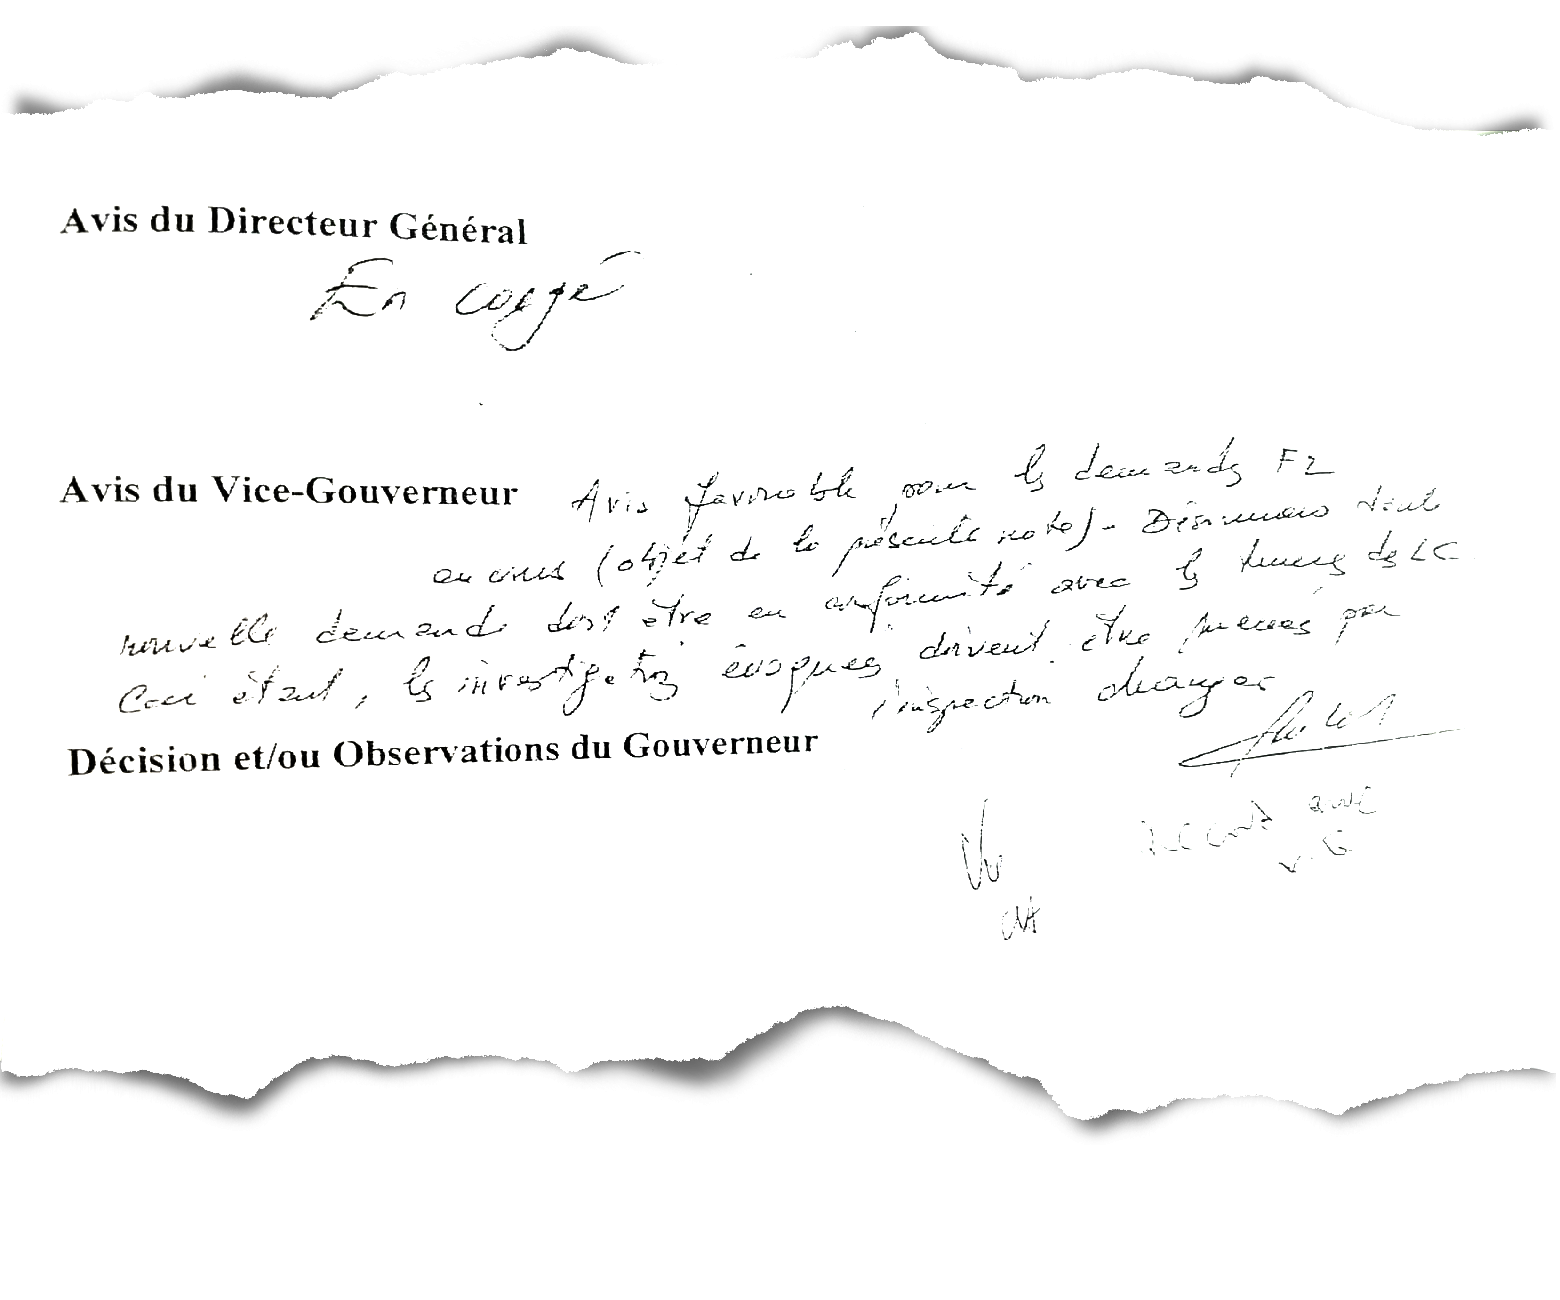 Avis du Directeur Général
En congé
Avis du Vice-Gouverneur
Avis favorable pour les demandes F2
en cours (objet de la présente note). Désormais toute
nouvelle demande doit être en conformité avec les termes des LC
Ceci étant, les investigations évoquées doivent être menées par
l'inspection changes
Décision et/ou Observations du Gouverneur
Vu
avec